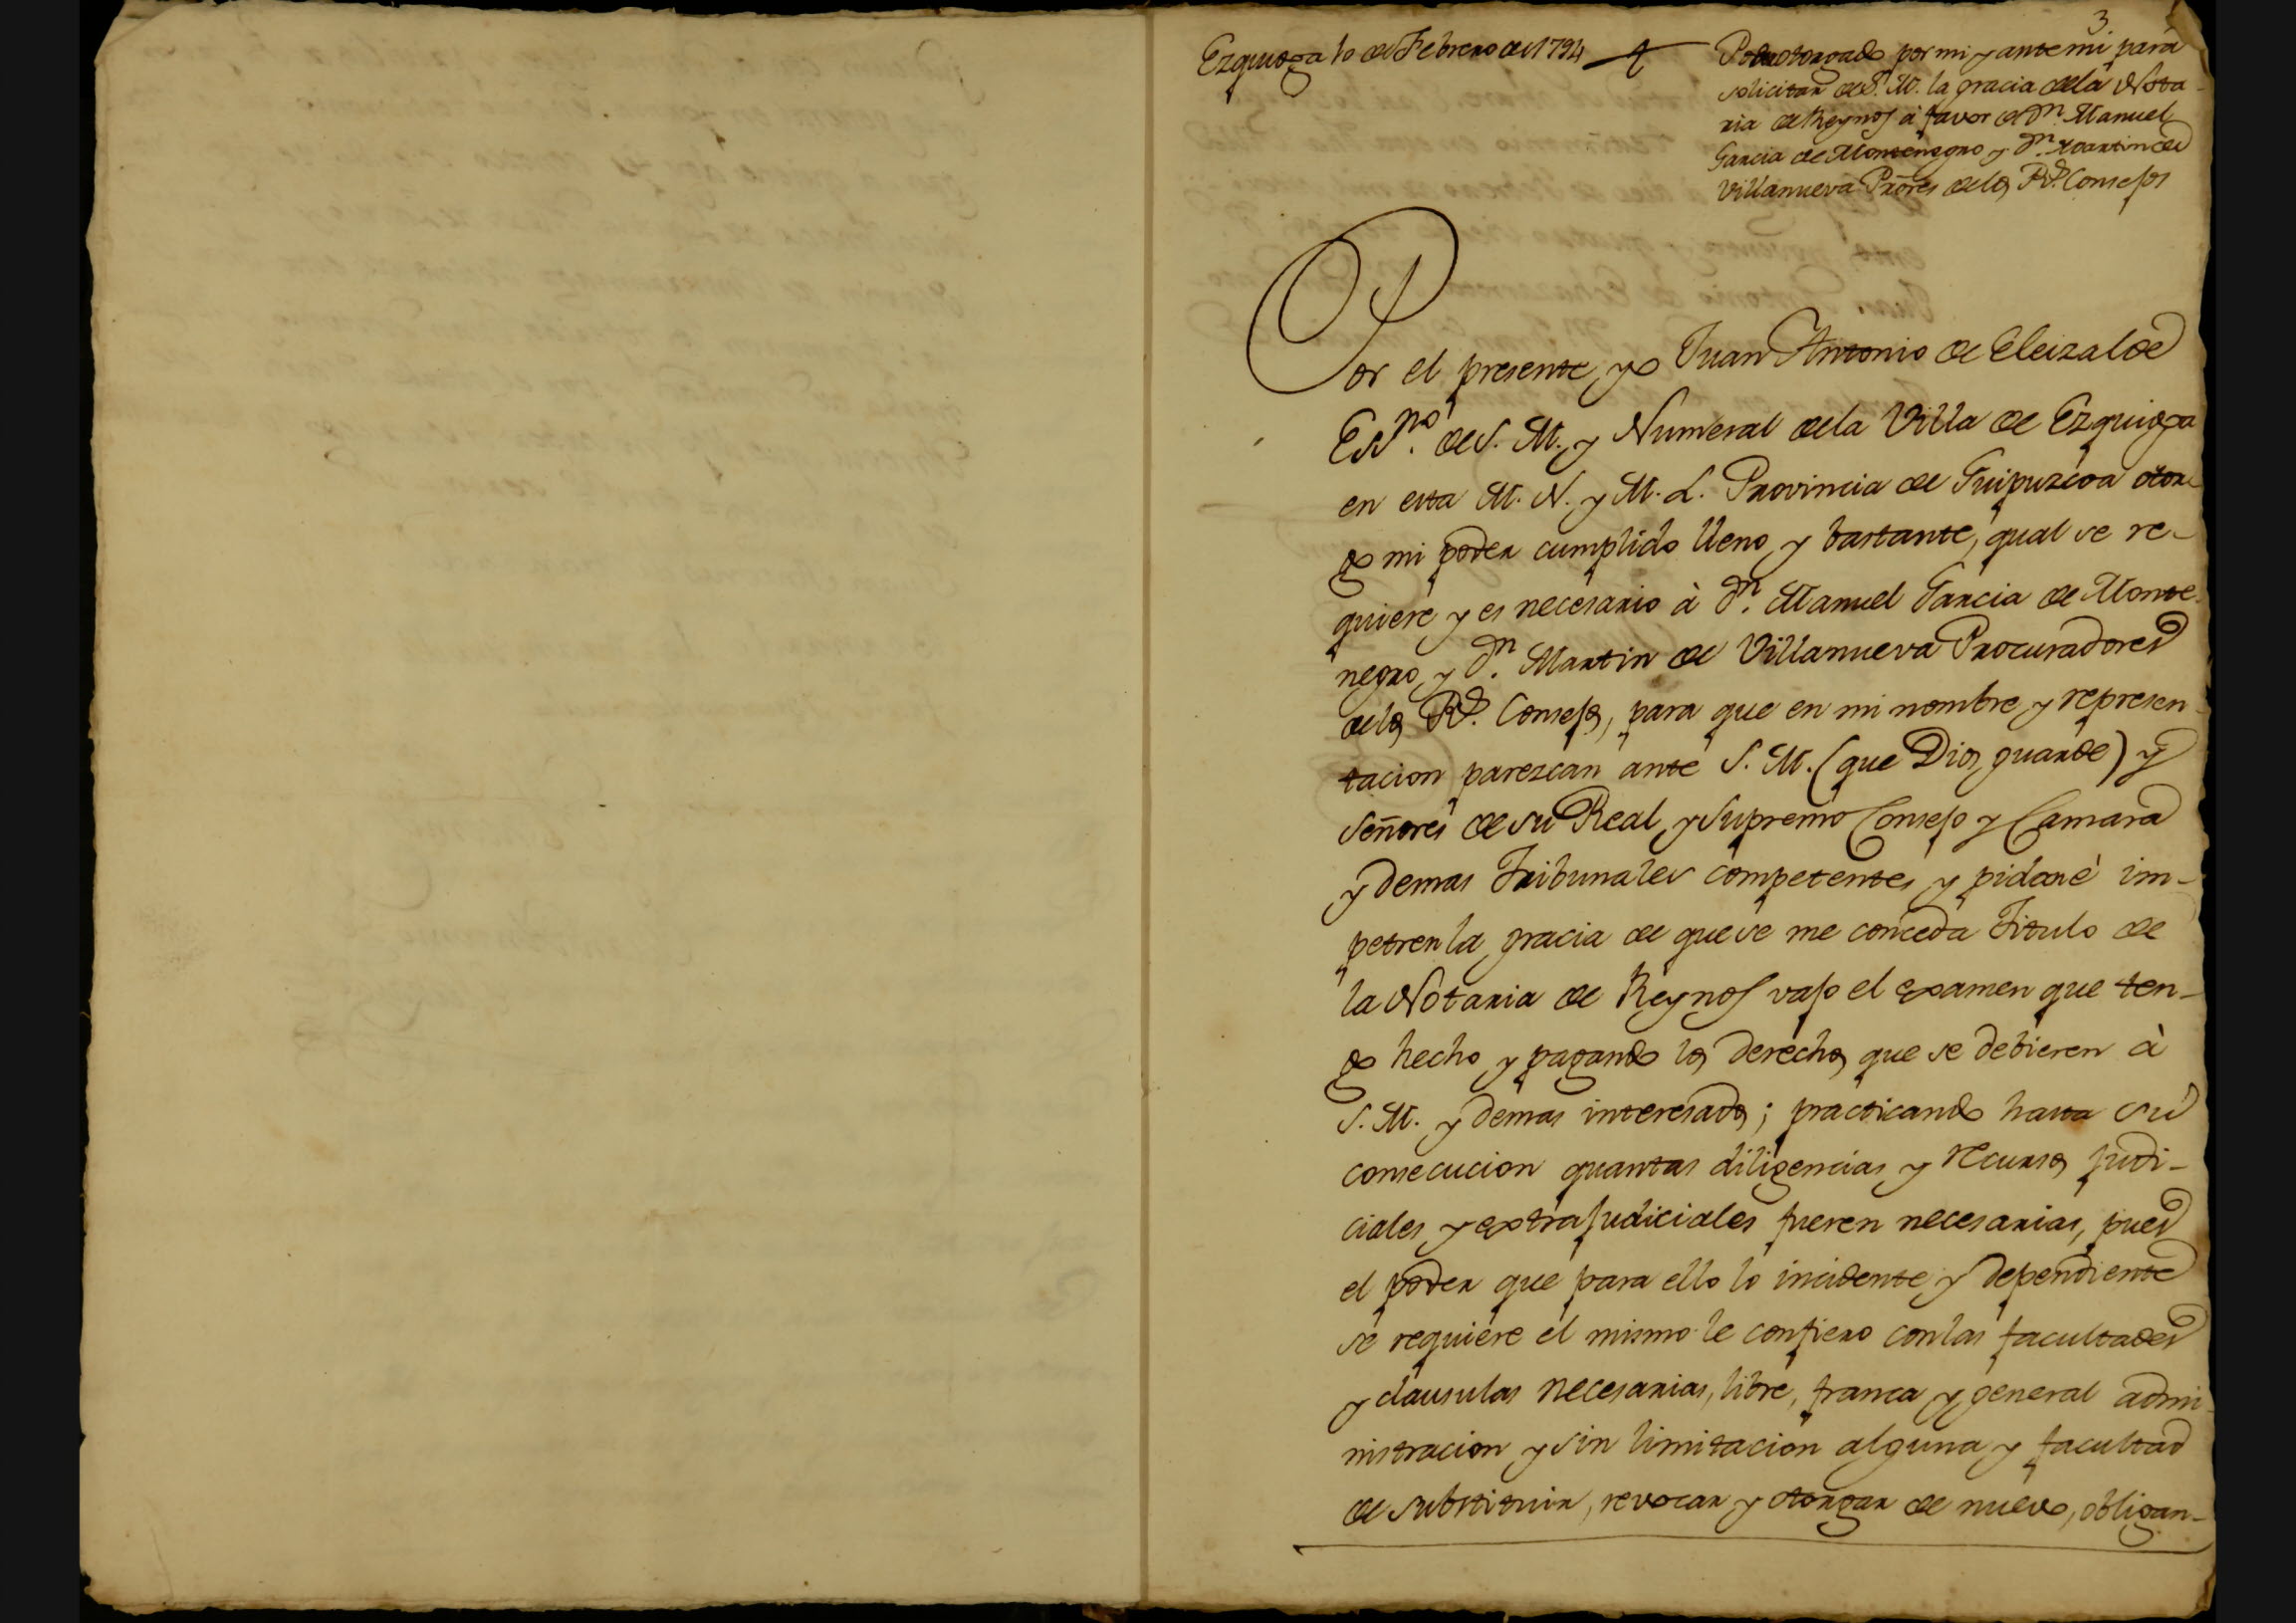 3
Ezquioga 10 de Febrero de 1794
Poder otorgado por mi y ante mi para
solicitar de S. M. la gracia de la Nota-
ria de Reynos à favor de Dn. Manuel
Garcia de Montenegro y Dn. Martin de
Villanueva Prōres de los Rs. Consejos
Por el presente, yo Juan Antonio de Eleizalde
Esno. de S. M. y Numeral de la Villa de Ezquioga
en esta M. N. y M. L. Provincia de Guipuzcoa otor-
go mi poder cumplido lleno, y bastante, qual se re-
quiere y es necesario à Dn. Manuel Garcia de Monte-
negro, y Dn. Martin de Villanueva Procuradores
de los Rs. Consejos, para que en mi nombre, y represen-
tacion parezcan ante S. M. (que Dios guarde) y
Señores de su Real, y Supremo Consejo y Camara
y demas Tribunales competentes, y pidan è im-
petren la gracia de que se me conceda Titulo de
la Notaria de Reynos vajo el examen que ten-
go hecho y pagando los derechos que se debieren à
S. M. y demas interesados; practicando hasta su
consecucion quantas diligencias y recursos judi-
ciales y extrajudiciales fueren necesarias, pues
el poder que para ello lo incidente y dependiente
se requiere el mismo le confiero con las facultades
y clausulas necesarias, libre, franca y general admi-
nistracion y sin limitacion alguna y facultad
de substituir, revocar y otorgar de nuevo, obligan-